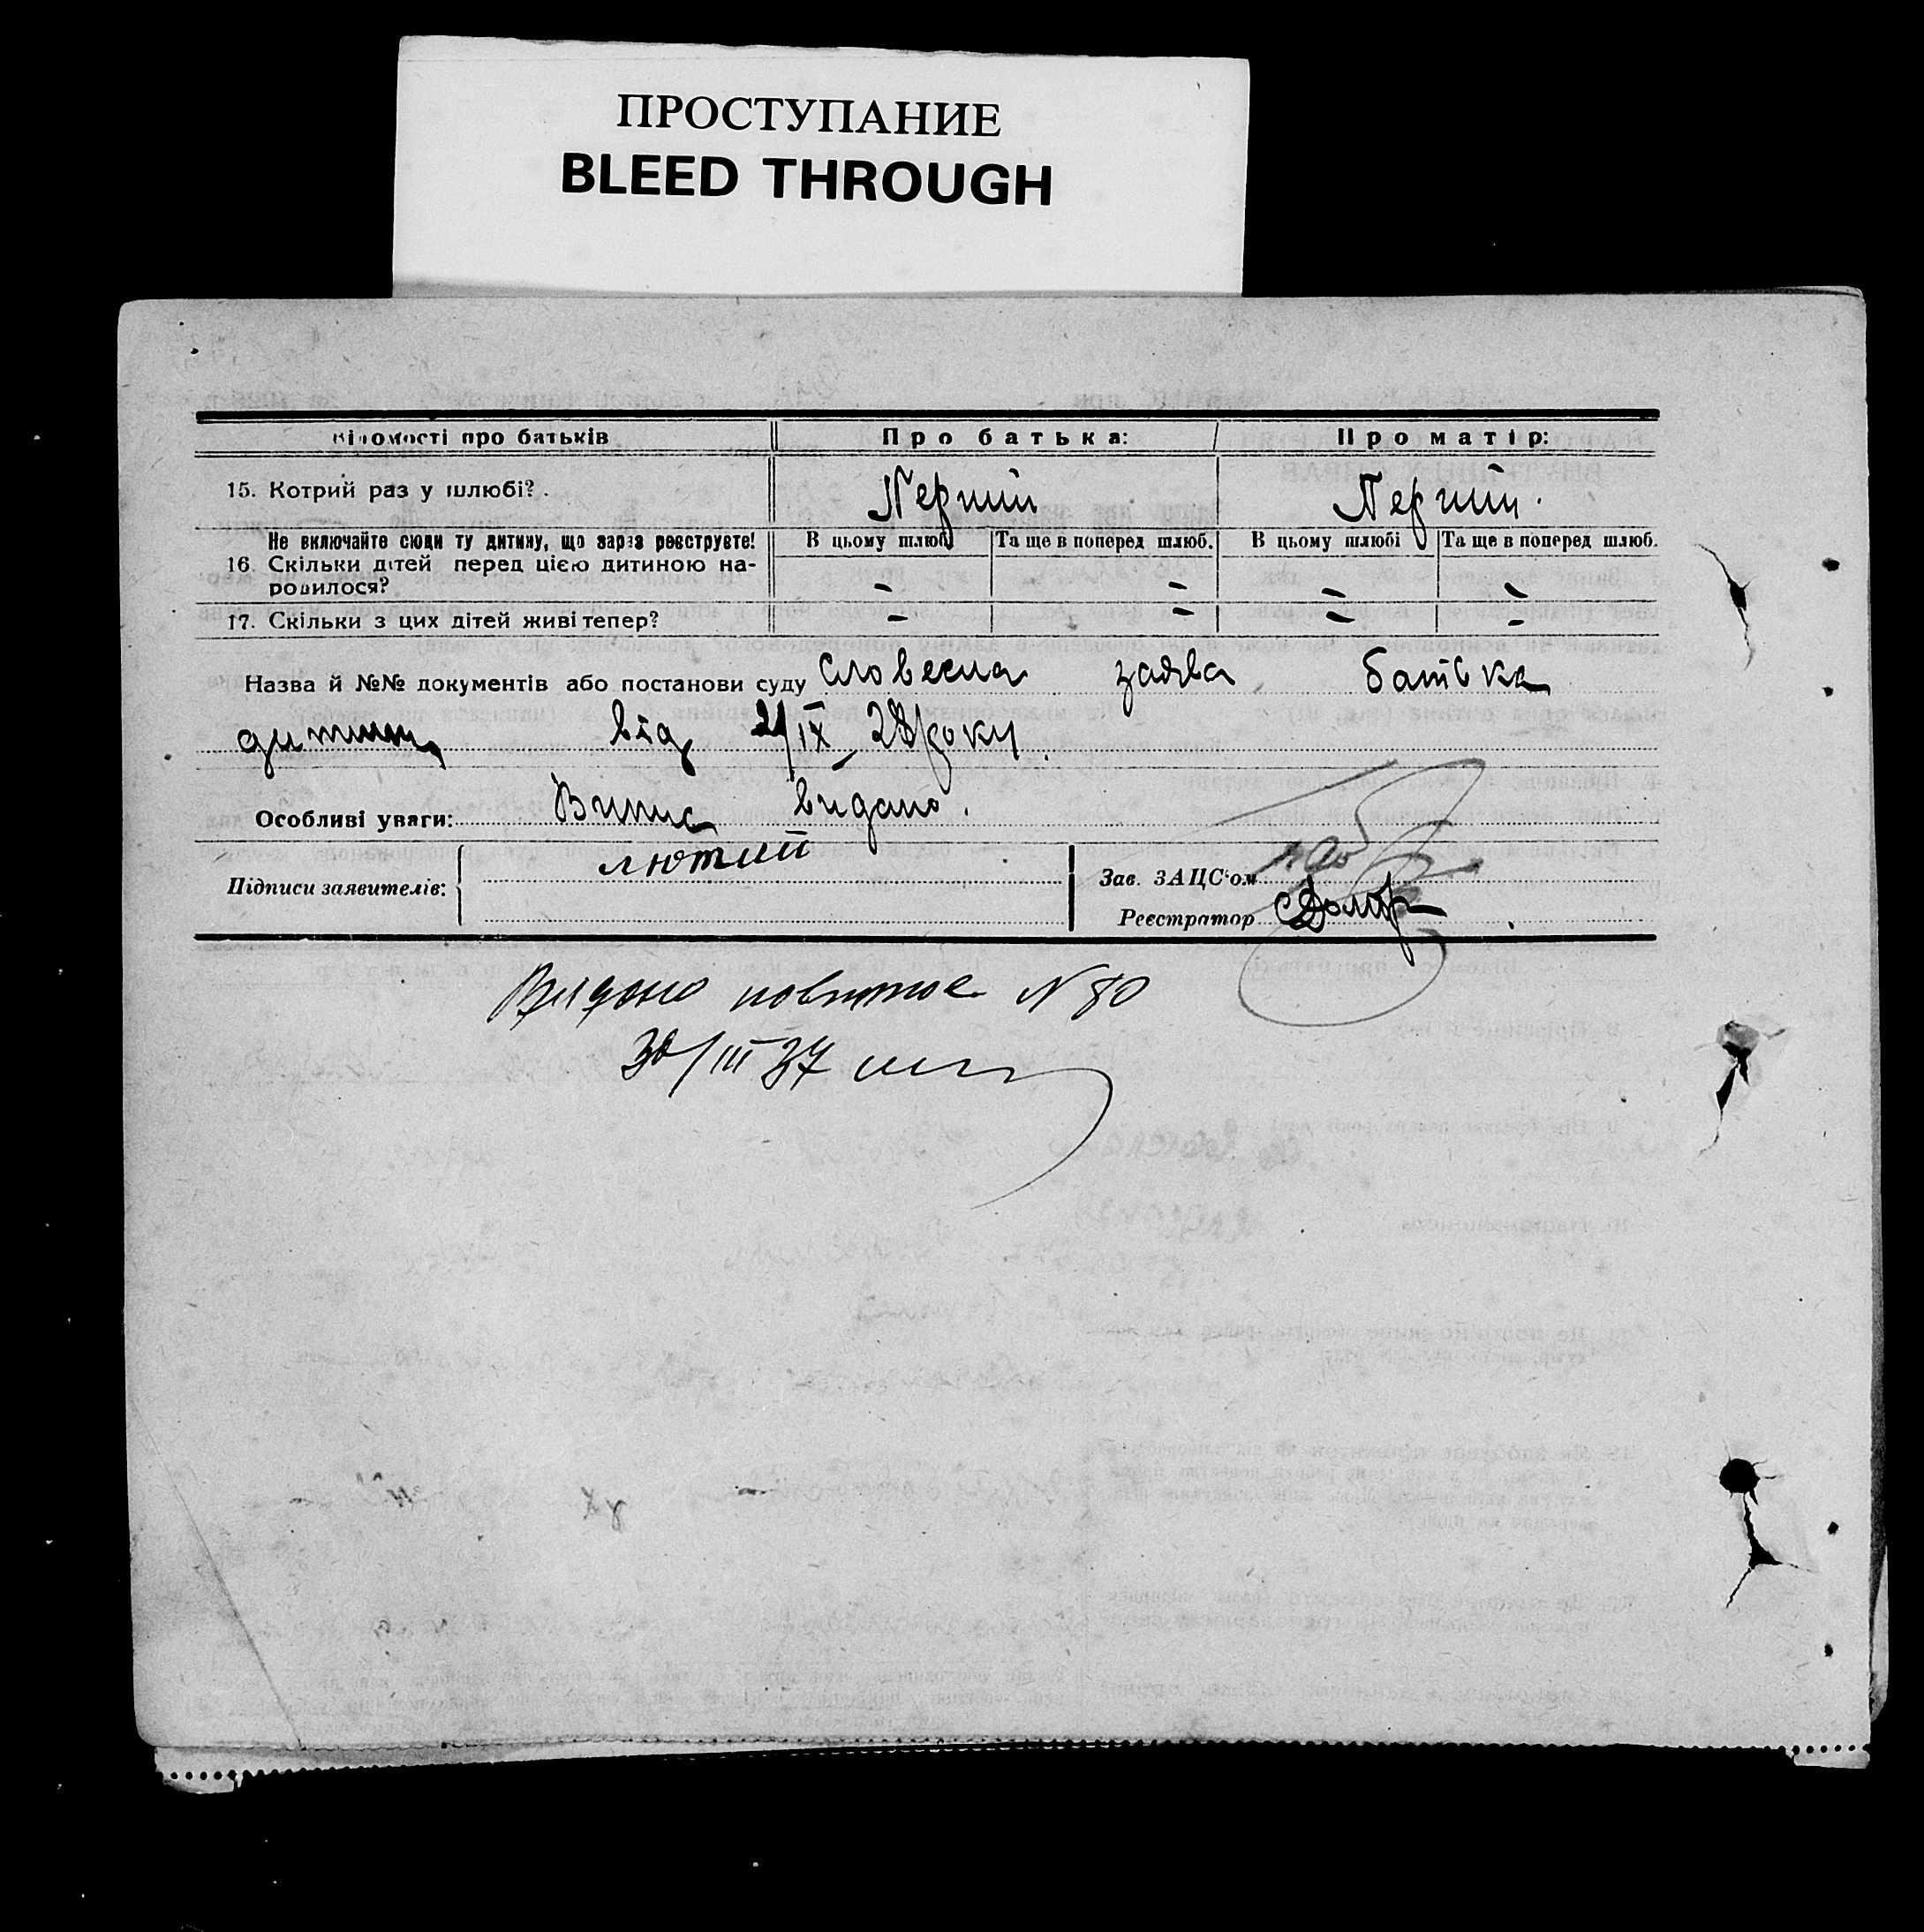 ПРОСТУПАНИЕ
BLEED THROUGH
Відомості про батьків Про батька: Про матір:
15. Котрий раз у шлюбі? Перший Перший.
Не включайте сюди ту дитину, що зараз реєструєте! В цьому шлюбі Та ще в поперед шлюб. В цьому шлюбі Та ще в поперед шлюб.
16. Скільки дітей перед цією дитиною на-
родилося? - - - -
17. Скільки з цих дітей живі тепер? - - - -
Назва й №№ документів або постанови суду Словесна заява батька
дитини від 21/IX 28 року.
Особливі уваги: Випис видано.
Підписи заявителів: лютий
Зав. ЗАЦС'ом
Реєстратор
Видано повторное N 80
30/III 37